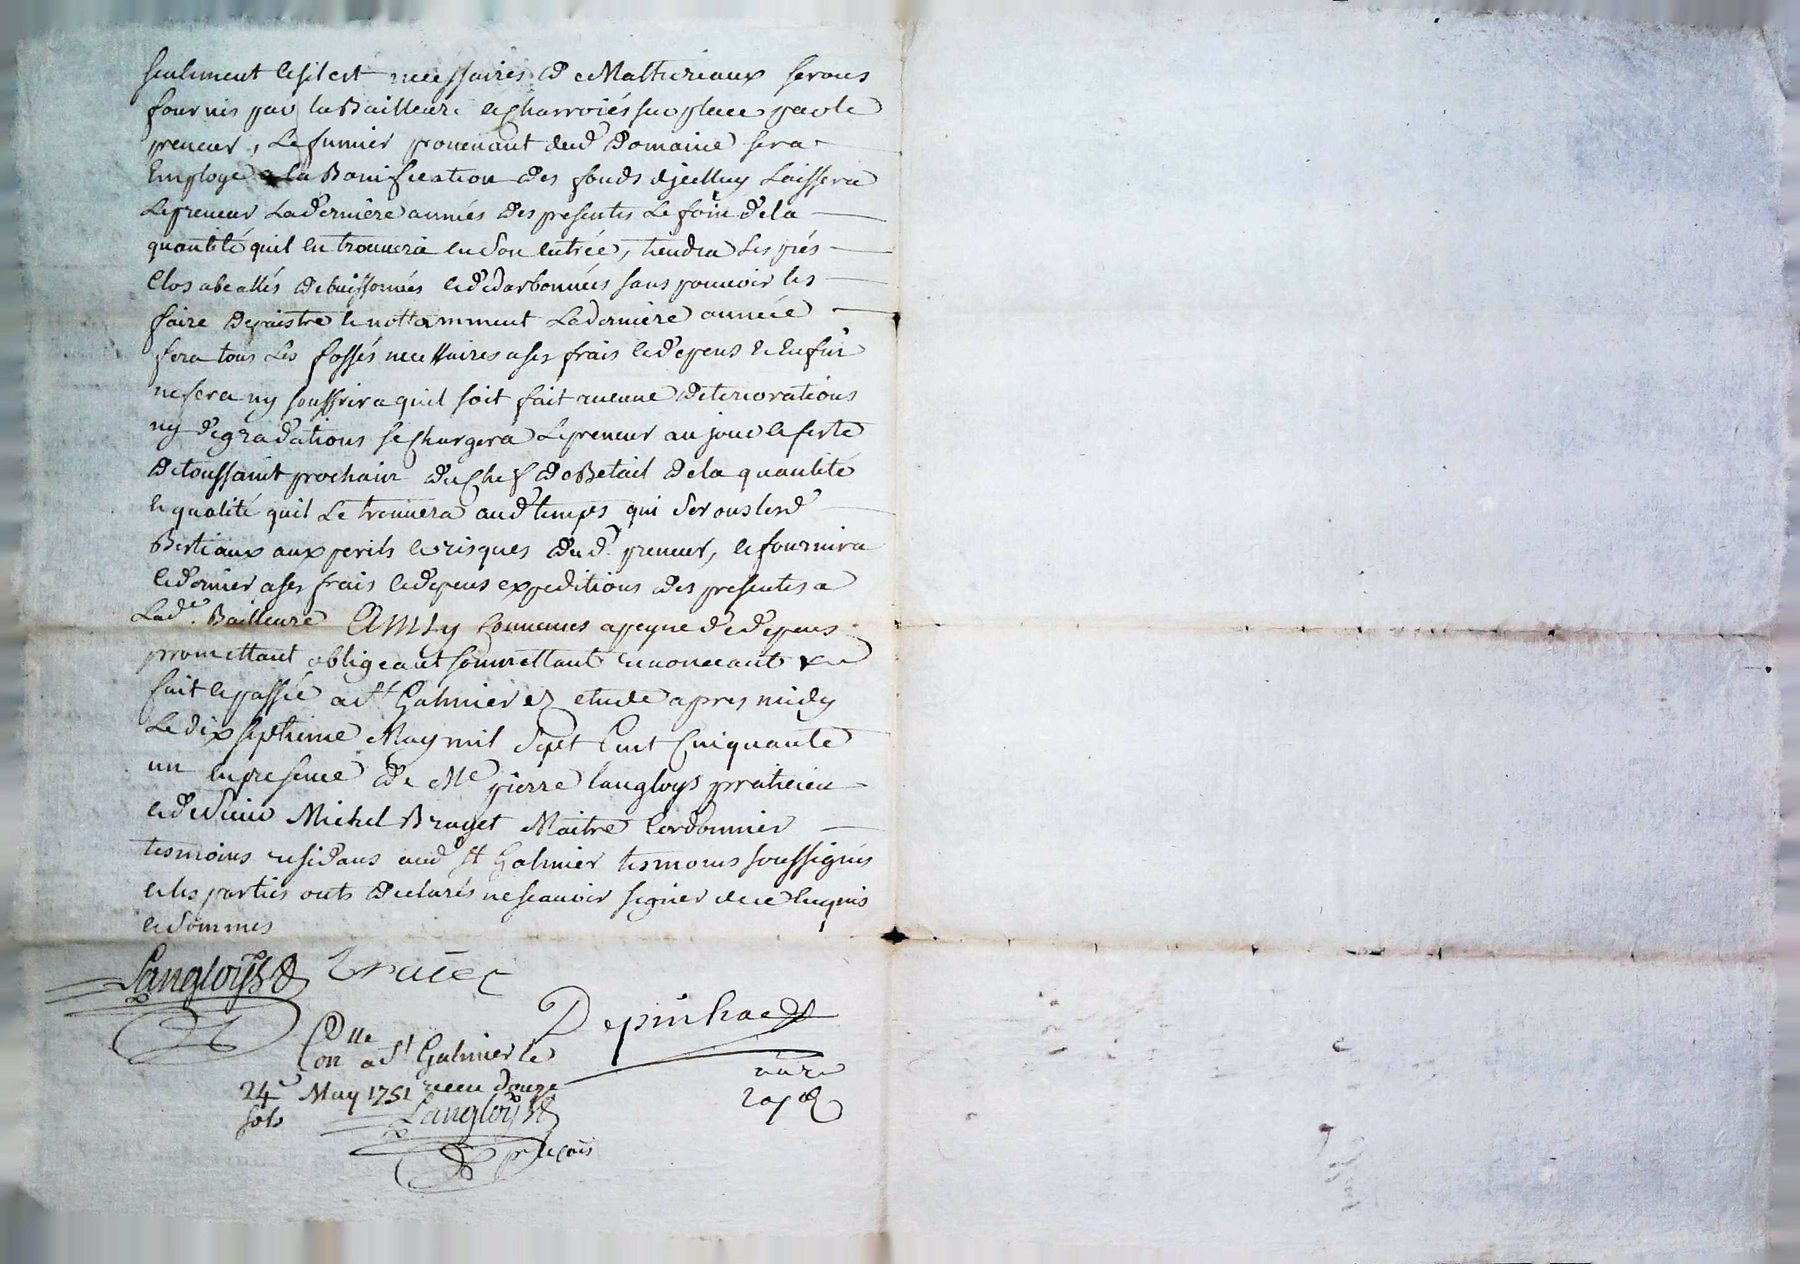 seulement et s'il est necessaires de Matteriaux serons
fournis par la Bailleure et Charroiés sur place par le
preneur, Le fumier provenant dud.t Domaine sera
Employé a la Bonification des fonds d'jcelluy Laissera
Le preneur La derniere année des presentes Le foin de la
quantité quil en trouvera en son entrée, tiendra Les prés
Clos abeallés debuissonnés et dedarbonnées sans pouvoir les
faire depaistre et nottamment La derniere année
fera tous Les fossés necessaires a ses frais et depens Et Enfin
ne fera ny souffrira quil soit fait aucune deteriorations
ny degradations se Chargera Le preneur au jour et feste
de toussaint prochain du Chef de Betail de la quantité
et qualité quil Le trouvera aud.t temps qui serous lesd.
Bestiaux aux perils et risques dud. preneur, et fournira
le dernier a ses frais et depens expeditions des presentes a
Lad.e Bailleure Ainsy Convenues a peyne de depens
promettant obligeant soumettant renonceant &a
fait et passée a St Galmier ez etude apres midy
Le dix septieme May mil Sept Cent Cinquante
un en presence de Me pierre langloys praticien
et de Sieur Michel Brayet Maitre Cordonnier
tesmoins residans aud St Galmier tesmoins soussignés
et les parties onts declarés ne scauoir signer de ce Enquis
et Sommés
Langloys Braiet
Depinhac
C.lle
Con a St Galmier le
24e May 1751 receu douze
sols Langloys